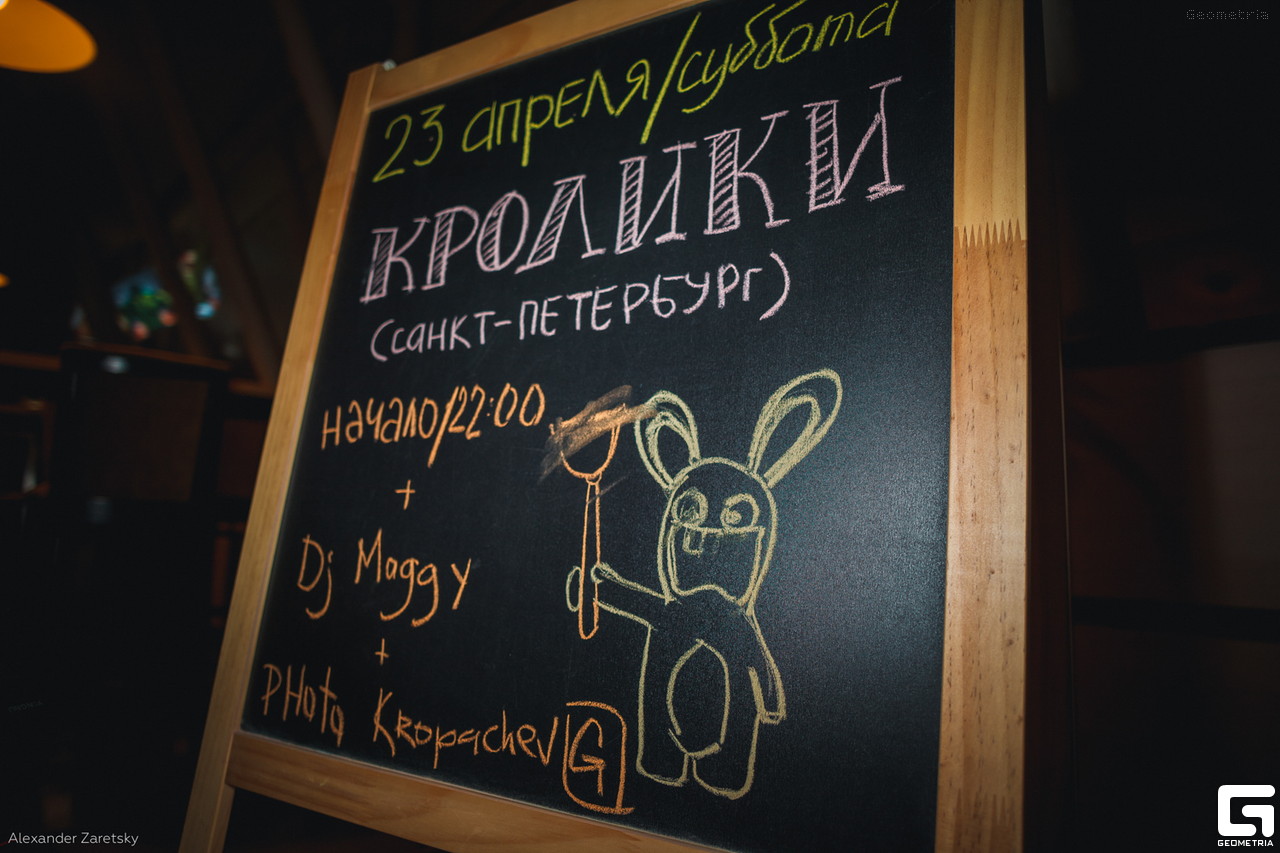 Geometria
23 апреля/суббота
КРОЛИКИ
(САНКТ-ПЕТЕРБУРГ)
начало/22:00
+
Dj Maggy
+
PHoto Kropachev G
Alexander Zaretsky
GEOMETRIA